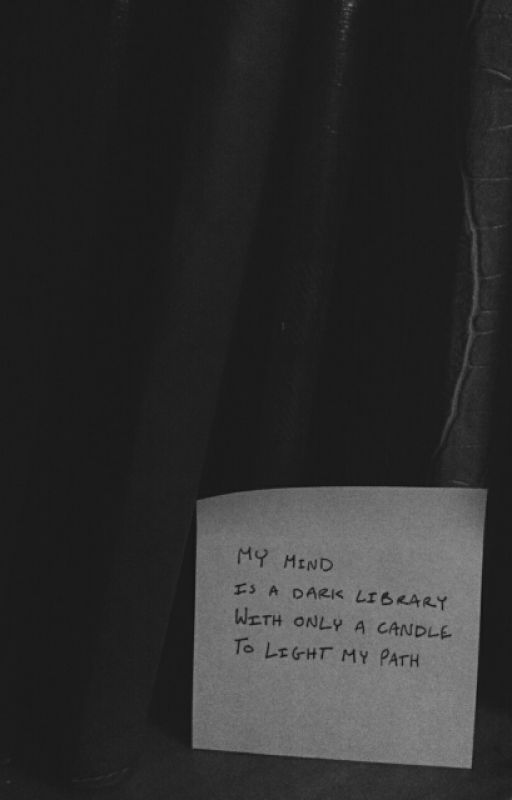 MY MIND
IS A DARK LIBRARY
WITH ONLY A CANDLE
TO LIGHT MY PATH